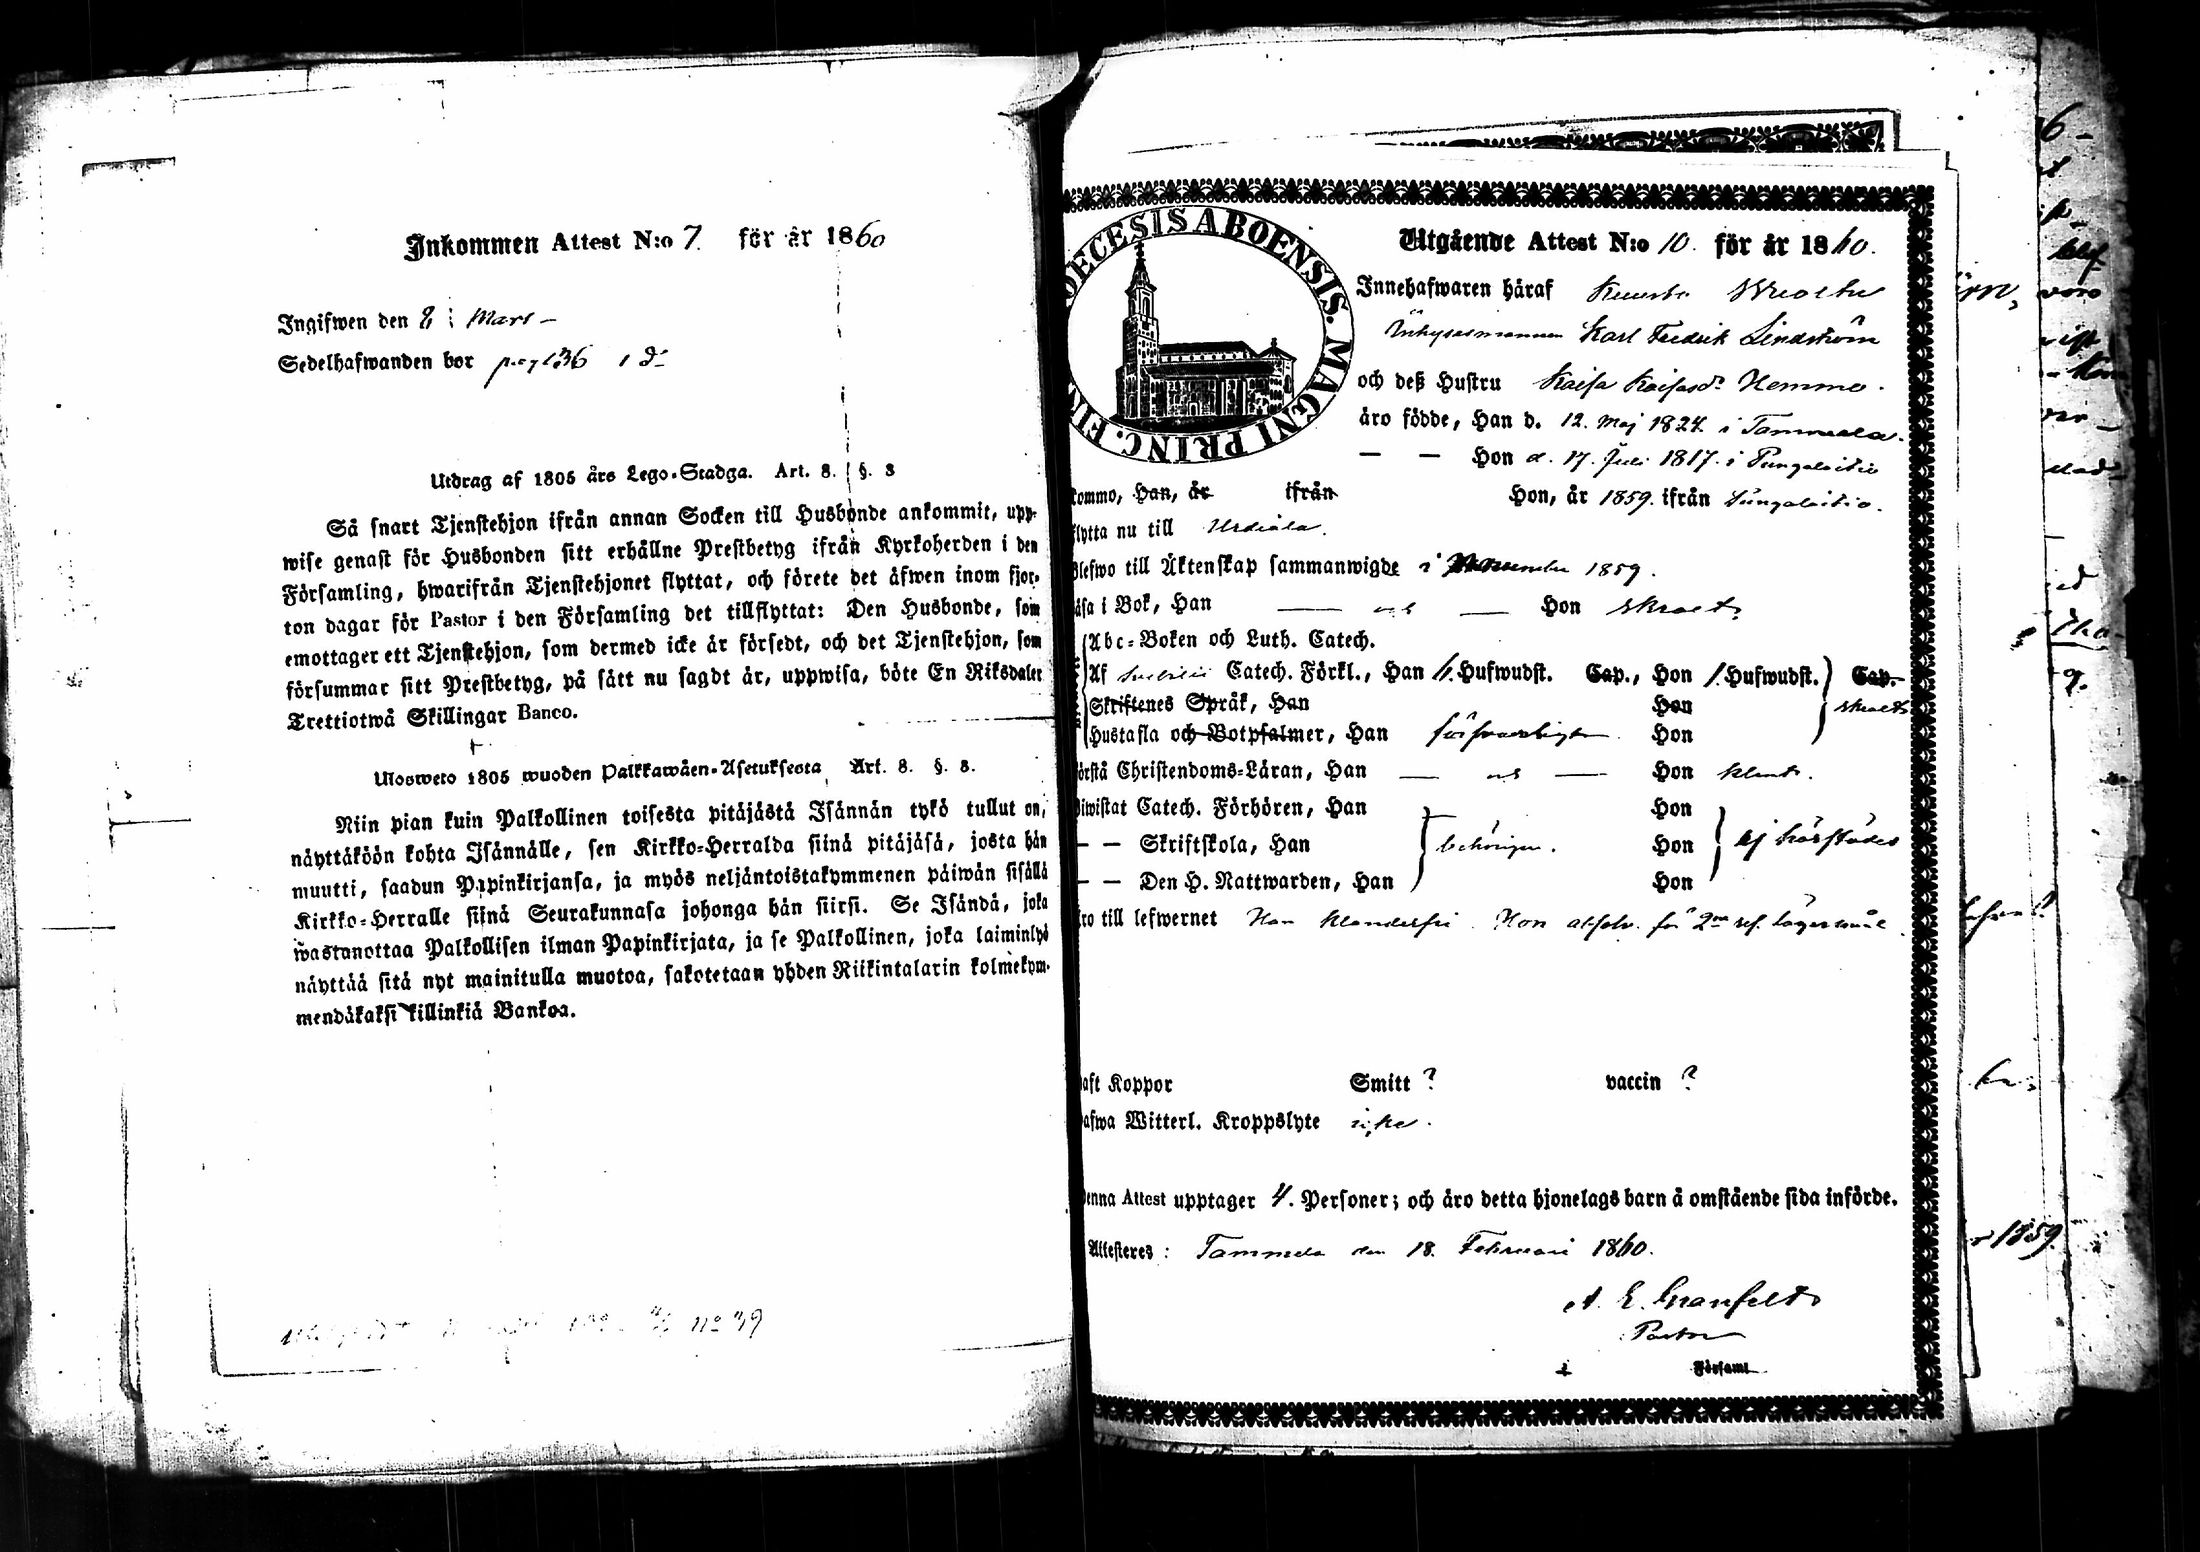 Inkommen Attest N:o 7. för år 1860
Ingifwen den 8 Mars –
Sedelhafwanden bor pag 136
Utdrag af 1805 års Lego-Stadga. Art. 8. §. 8
Så snart Tjenstehjon ifrån annan Socken till Husbonde ankommit, upp-
wise genast för Husbonden sitt erhållne Prestbetyg ifrån Kyrkoherden i den
Församling, hwarifrån Tjenstehjonet flyttat, och förete det äfwen inom fjor-
ton dagar för Pastor i den Församling det tillflyttat: Den Husbonde, som
emottager ett Tjenstehjon, som dermed icke är försedt, och det Tjenstehjon, som
försummar sitt Prestbetyg, på sätt nu sagdt är, uppwisa, böte En Riksdaler
Trettiotwå Skillingar Banco.
Ulosweto 1805 wuoden Palkkawäen-Asetuksesta Art. 8. §. 8.
Niin pian kuin Palkollinen toisesta pitäjästä Isännän tykö tullut on,
näyttäköön kohta Isännälle, sen Kirkko-Herralda siinä pitäjäsä, josta hän
muutti, saadun Papinkirjansa, ja myös neljäntoistakymmenen päiwän sisällä
Kirkko-Herralle siinä Seurakunnasa johonga hän siirsi. Se Isändä, joka
wastanottaa Palkollisen ilman Papinkirjata, ja se Palkollinen, joka laiminlyö
näyttää sitä nyt mainitulla muotoa, sakotetaan yhden Riikintalarin kolmekym-
mendäkaksi killinkiä Bankoa.
No 39
DIOECESIS ABOENSIS. MAGNI PRINC. FIN
Utgående Attest N:o 10. för år 1860.
Innehafwaren häraf
Inhysesmannen Karl Fredrik Lindström
och deß Hustru Kaisa Kaisasdr Hemmo.
äro födde, Han d. 12. Maj 1824. i Tammela.
— — Hon d. 17. Juli 1817. i Pungalaitio
kommo, Han, år ifrån Hon, år 1859. ifrån Pungalaitio.
flytta nu till Urdiala.
Blefwo till Äktenskap sammanwigde i November 1859.
läsa i Bok, Han — — Hon skralt.
Abc-Boken och Luth. Catech.
Af Svebilii Catech. Förkl., Han 6. Hufwudst. Cap., Hon 1. Hufwudst. Cap.
Skriftenes Språk, Han Hon skralt
Hustafla och Botpsalmer, Han försvarligt Hon
förstå Christendoms-Läran, Han — — Hon klent.
Biwistat Catech. Förhören, Han Hon
— — Skriftskola, Han behörigen. Hon ej härstädes
— — Den H. Nattwarden, Han Hon
äro till lefwernet Han klanderfri. Hon absolv. för 2dra res. lägersmål.
haft Koppor Smitt ? vaccin ?
hafwa Witterl. Kroppslyte icke.
Denna Attest upptager 4. Personer; och äro detta hjonelags barn å omstående sida införde.
Attesteres: Tammela den 18. Februari 1860.
A. E. Granfelt
Pastor
i Församl
r 1859.